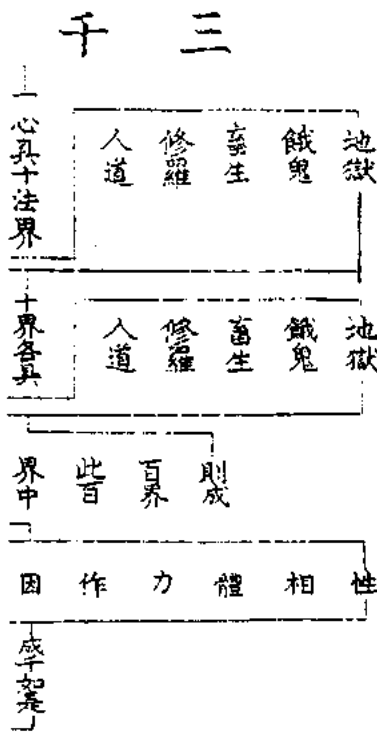 三千
地獄
餓鬼
畜生
修羅
人道
一心具十法界
地獄
餓鬼
畜生
修羅
人道
十界各具
則成
百界
此百
界中
性
相
體
力
作
因
成千如是